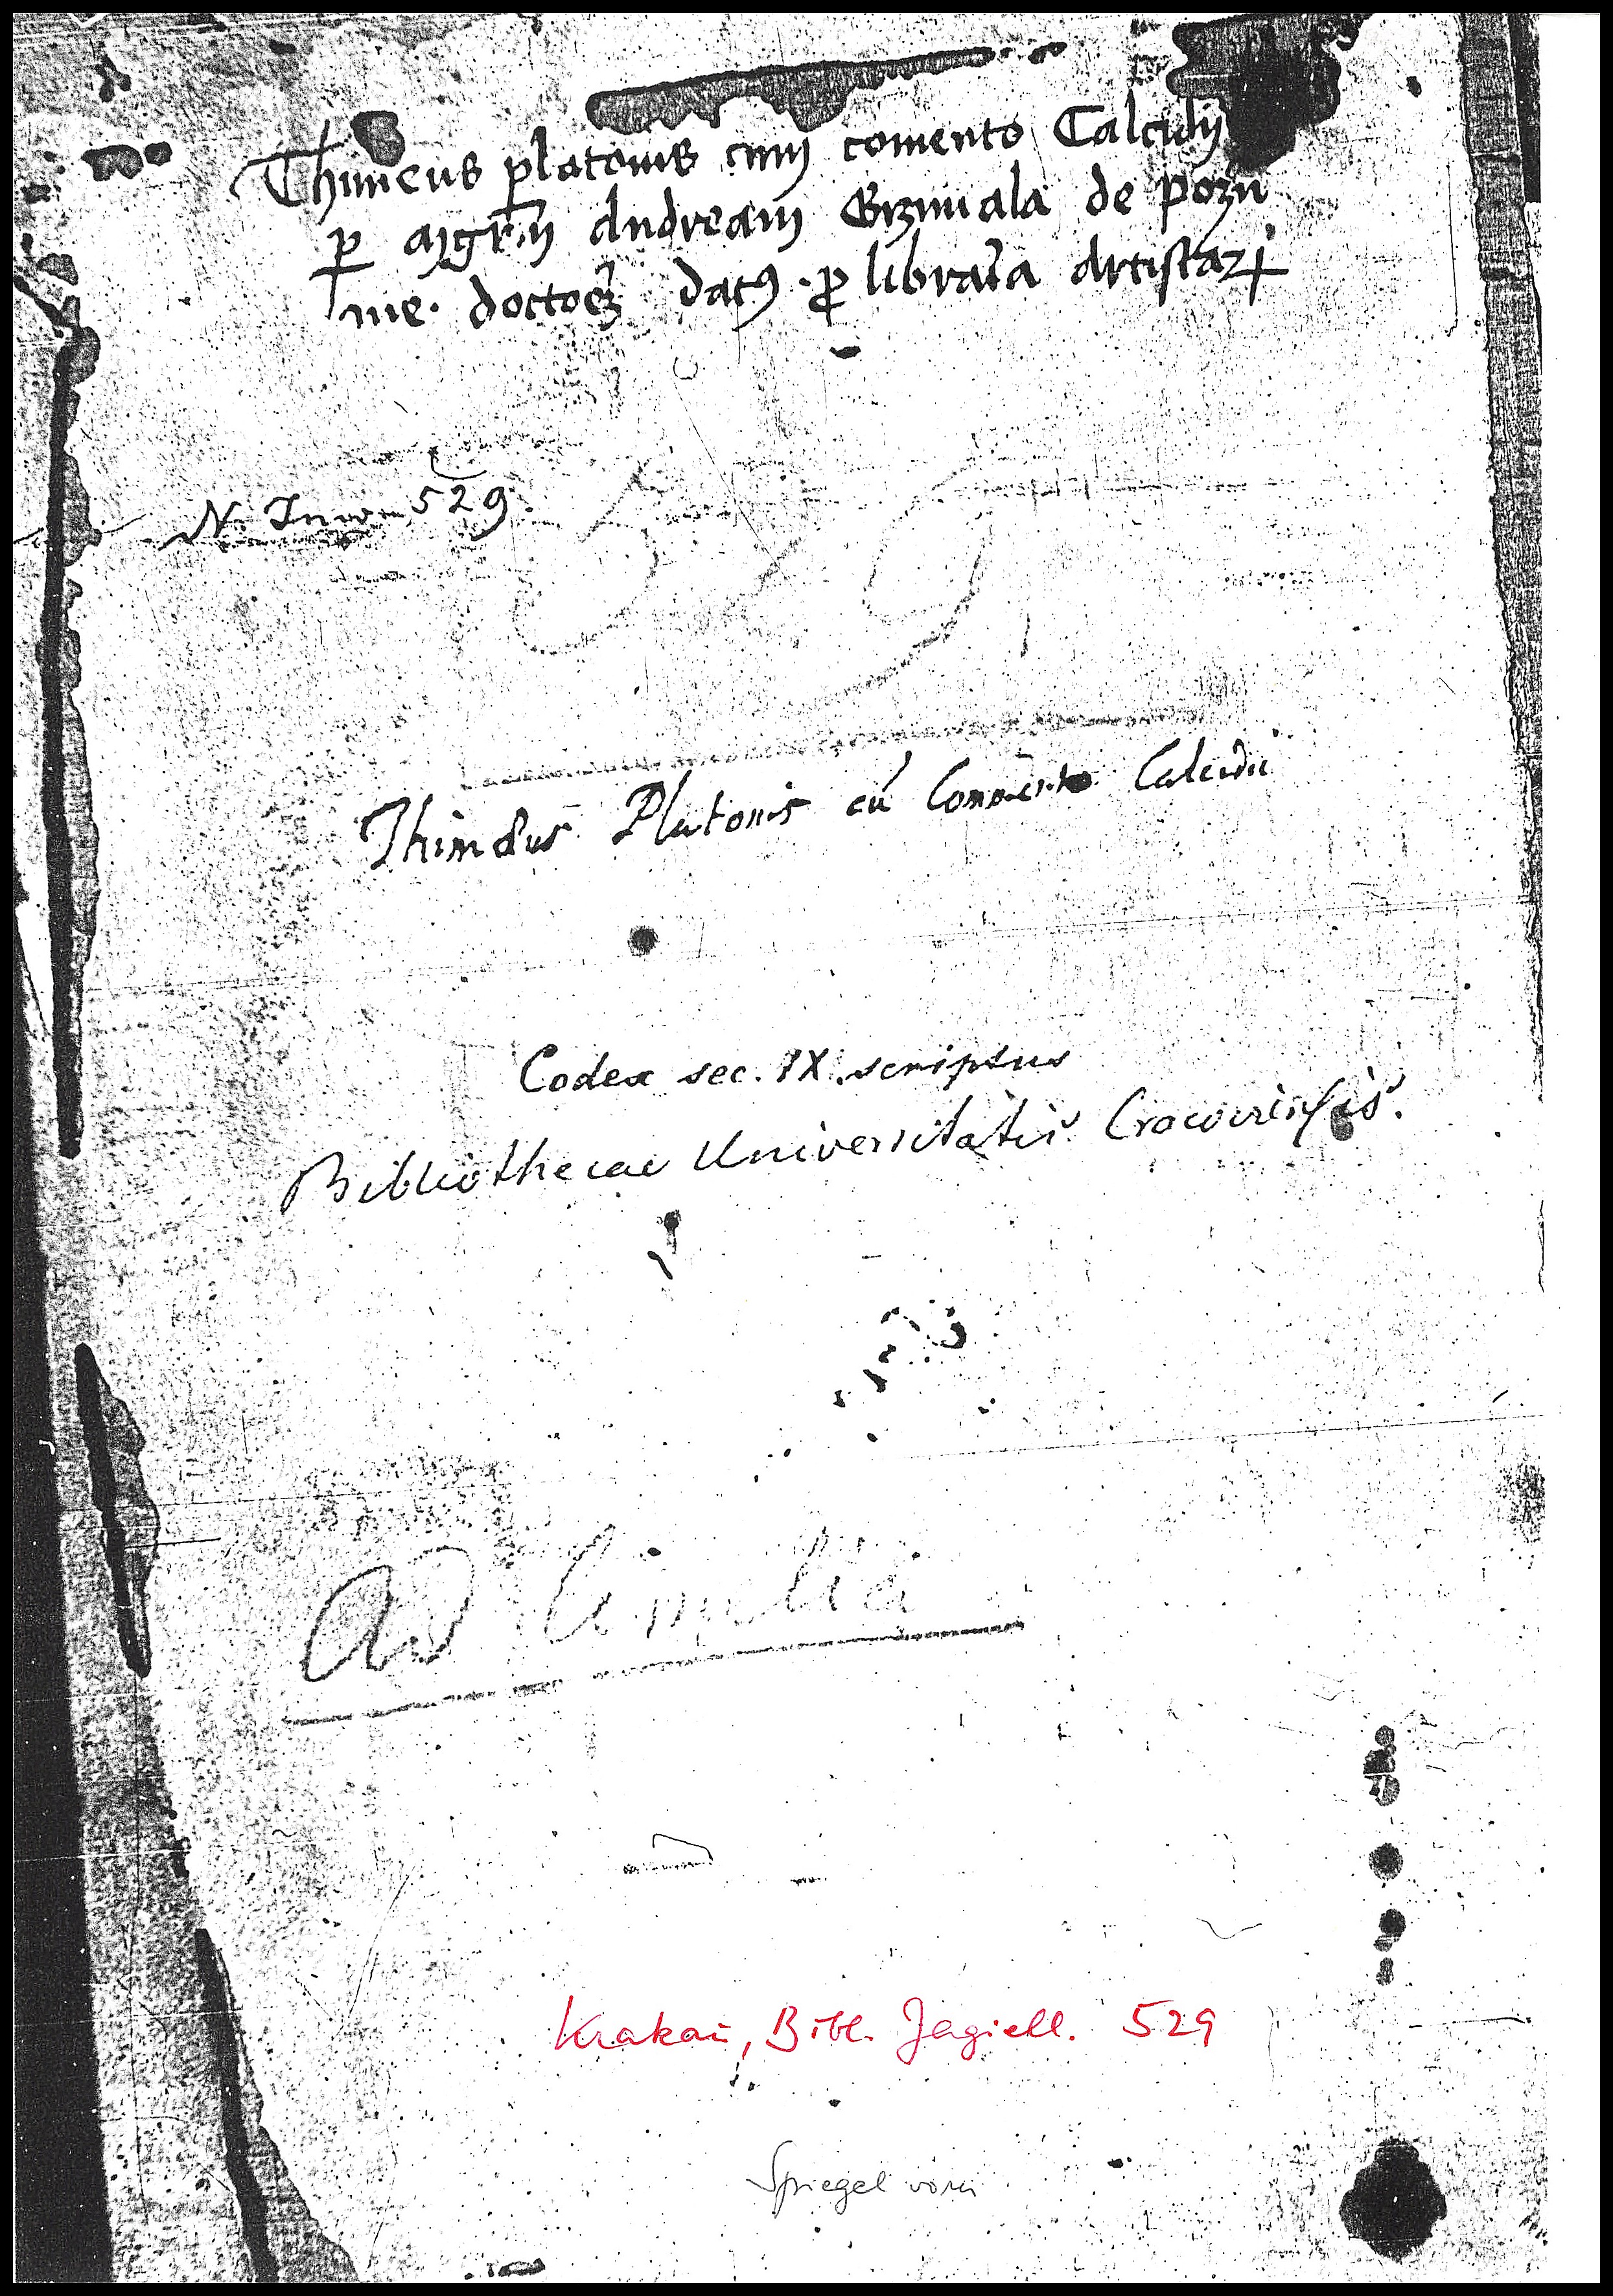 Thimeus platonis cum comento Calcidij
p mgrm Andream Grzimala de pozn
me. doctorem datus pro libraria Artistarum
N. Inw. 529.
529
Thimæus Platonis cū Commento Calcidii
Codex sec. IX. scriptus
Bibliothecae Universitatis Cracoviensis.
ad Cimelia
Krakau, Bibl. Jagiell. 529
Spiegel vorn